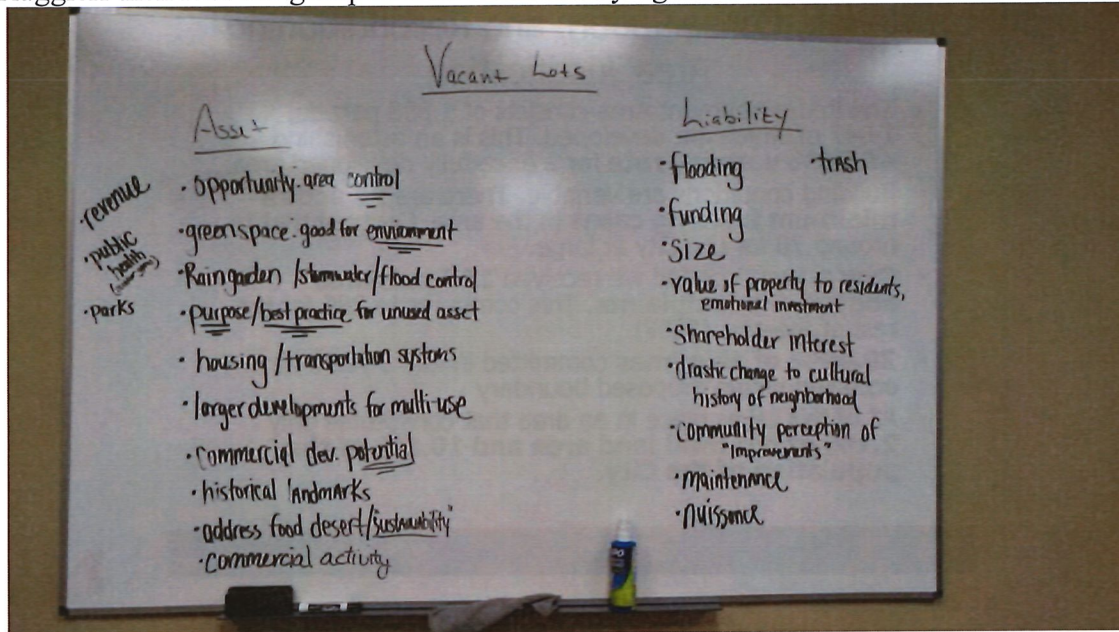 Vacant Lots
Asset
• revenue
• public
health
• parks
• opportunity. area control
• greenspace. good for environment
• Raingarden /stormwater/flood control
• purpose/best practice for unused asset
• housing /transportation systems
• larger developments for multi-use
• commercial dev. potential
• historical landmarks
• address food desert/"sustainability"
• commercial activity
Liability
• flooding
trash
• funding
• Size
• value of property to residents,
emotional investment
• Shareholder interest
• drastic change to cultural
history of neighborhood
• community perception of
"Improvements"
• maintenance
• nuissance